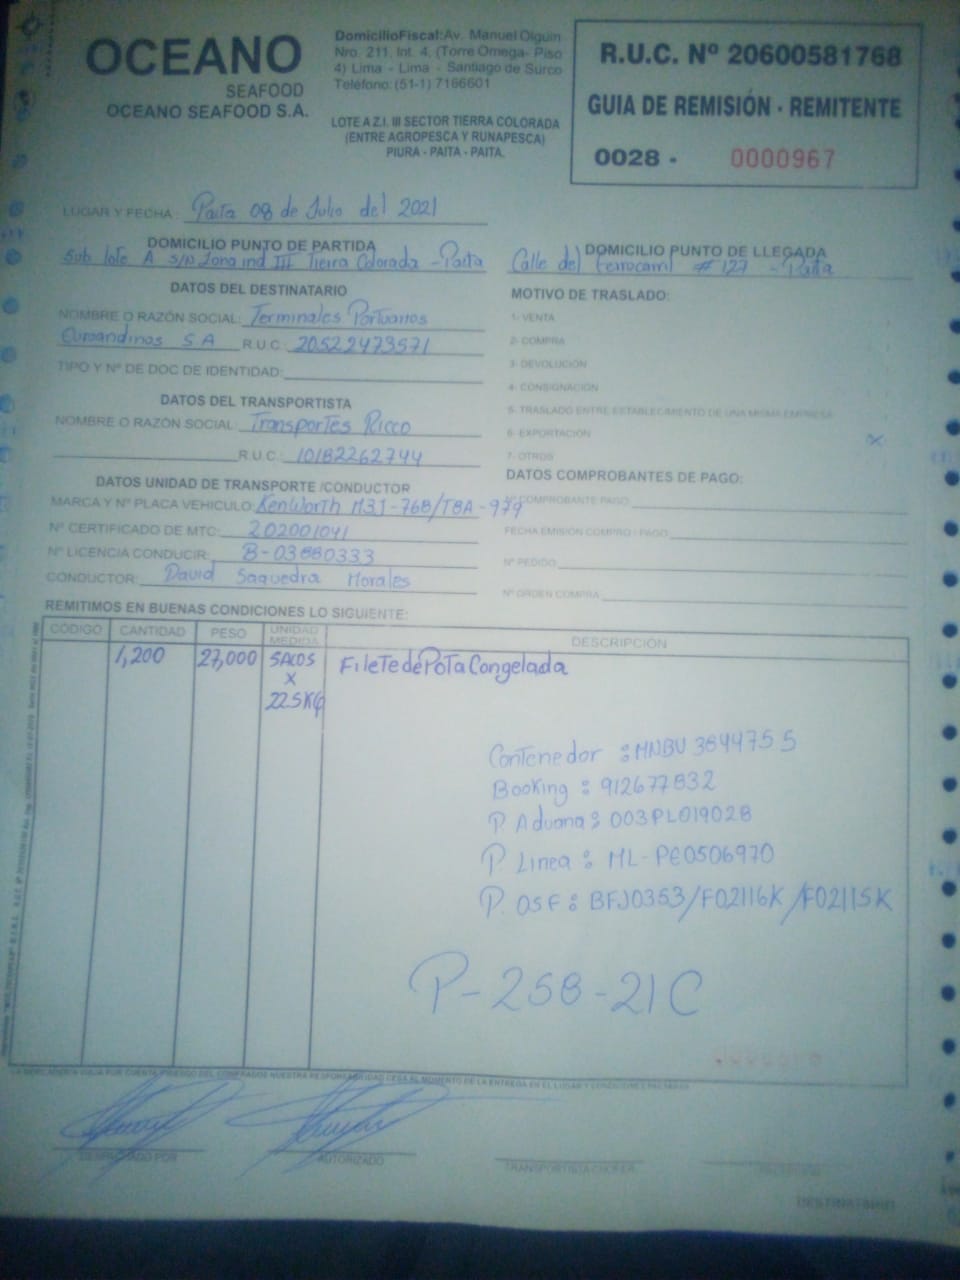 OCEANO
SEAFOOD
OCEANO SEAFOOD S.A.
DomicilioFiscal:Av. Manuel Olguin
Nro. 211, Int. 4, (Torre Omega- Piso
4) Lima - Lima - Santiago de Surco
Teléfono: (51-1) 7166601
LOTE A Z.I. III SECTOR TIERRA COLORADA
(ENTRE AGROPESCA Y RUNAPESCA)
PIURA - PAITA - PAITA.
R.U.C. Nº 20600581768
GUIA DE REMISIÓN - REMITENTE
0028 - 0000967
LUGAR Y FECHA : Paita 08 de Julio del 2021
DOMICILIO PUNTO DE PARTIDA
Sub lote A S/N Zona ind III Tierra Colorada - Paita
DOMICILIO PUNTO DE LLEGADA
Calle del Ferrocarril # 127 - Paita
DATOS DEL DESTINATARIO
NOMBRE O RAZÓN SOCIAL: Terminales Portuarios
Euroandinos S A R.U.C.: 20522473571
TIPO Y Nº DE DOC DE IDENTIDAD:
DATOS DEL TRANSPORTISTA
NOMBRE O RAZÓN SOCIAL: Transportes Ricco
R.U.C.: 10182262744
MOTIVO DE TRASLADO:
1- VENTA
2- COMPRA
3- DEVOLUCIÓN
4- CONSIGNACIÓN
5- TRASLADO ENTRE ESTABLECIMIENTO DE UNA MISMA EMPRESA
6- EXPORTACIÓN x
7- OTROS
DATOS UNIDAD DE TRANSPORTE /CONDUCTOR
MARCA Y Nº PLACA VEHICULO: Kenworth M3J-768/TBA-979
Nº CERTIFICADO DE MTC: 202001041
Nº LICENCIA CONDUCIR: B-03880333
CONDUCTOR: David Saquedra Morales
DATOS COMPROBANTES DE PAGO:
Nº COMPROBANTE PAGO:
FECHA EMISIÓN COMPRO - PAGO:
Nº PEDIDO
Nº ORDEN COMPRA
REMITIMOS EN BUENAS CONDICIONES LO SIGUIENTE:
CÓDIGO CANTIDAD PESO UNIDAD MEDIDA DESCRIPCIÓN
1,200 27,000 SACOS Filete de Pota Congelada
x
22.5 KG
Contenedor : MNBU 364475 5
Booking : 912677832
P. Aduana : 003PL019028
P. Linea : ML-PE0506970
P. OSF : BFJ0353/F02116K/F02115K
P-258-21C
LA MERCADERIA VIAJA POR CUENTA Y RIESGO DEL COMPRADOR NUESTRA RESPONSABILIDAD CESA AL MOMENTO DE LA ENTREGA EN EL LUGAR Y CONDICIONES PACTADAS
DESPACHADO POR
AUTORIZADO
TRANSPORTISTA CHOFER
DESTINATARIO